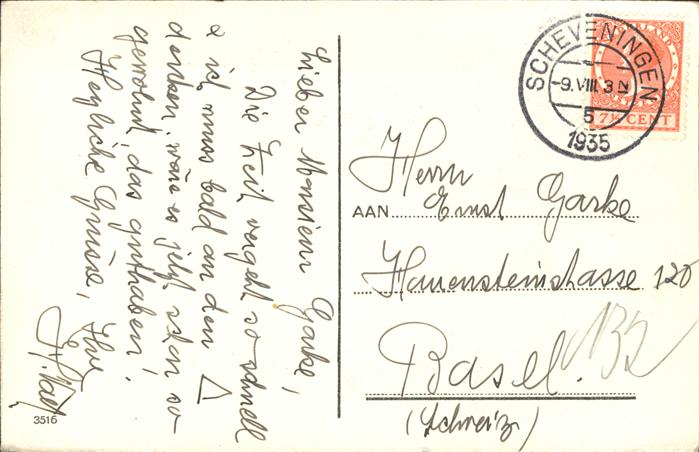 Lieber Monsieur Garke,
Die Zeit vergeht so schnell
& ich muss bald an den △
denken, wäre es jetzt schon so
gewohnt, das guthaben!
Herzliche Grüsse, Ihre
3516
NEDERLAND
7½ CENT
SCHEVENINGEN
-9.VIII.3 N
5
1935
AAN
Herrn
Ernst Garke
Hauensteinstrasse 120
132
Basel.
(Schweiz)